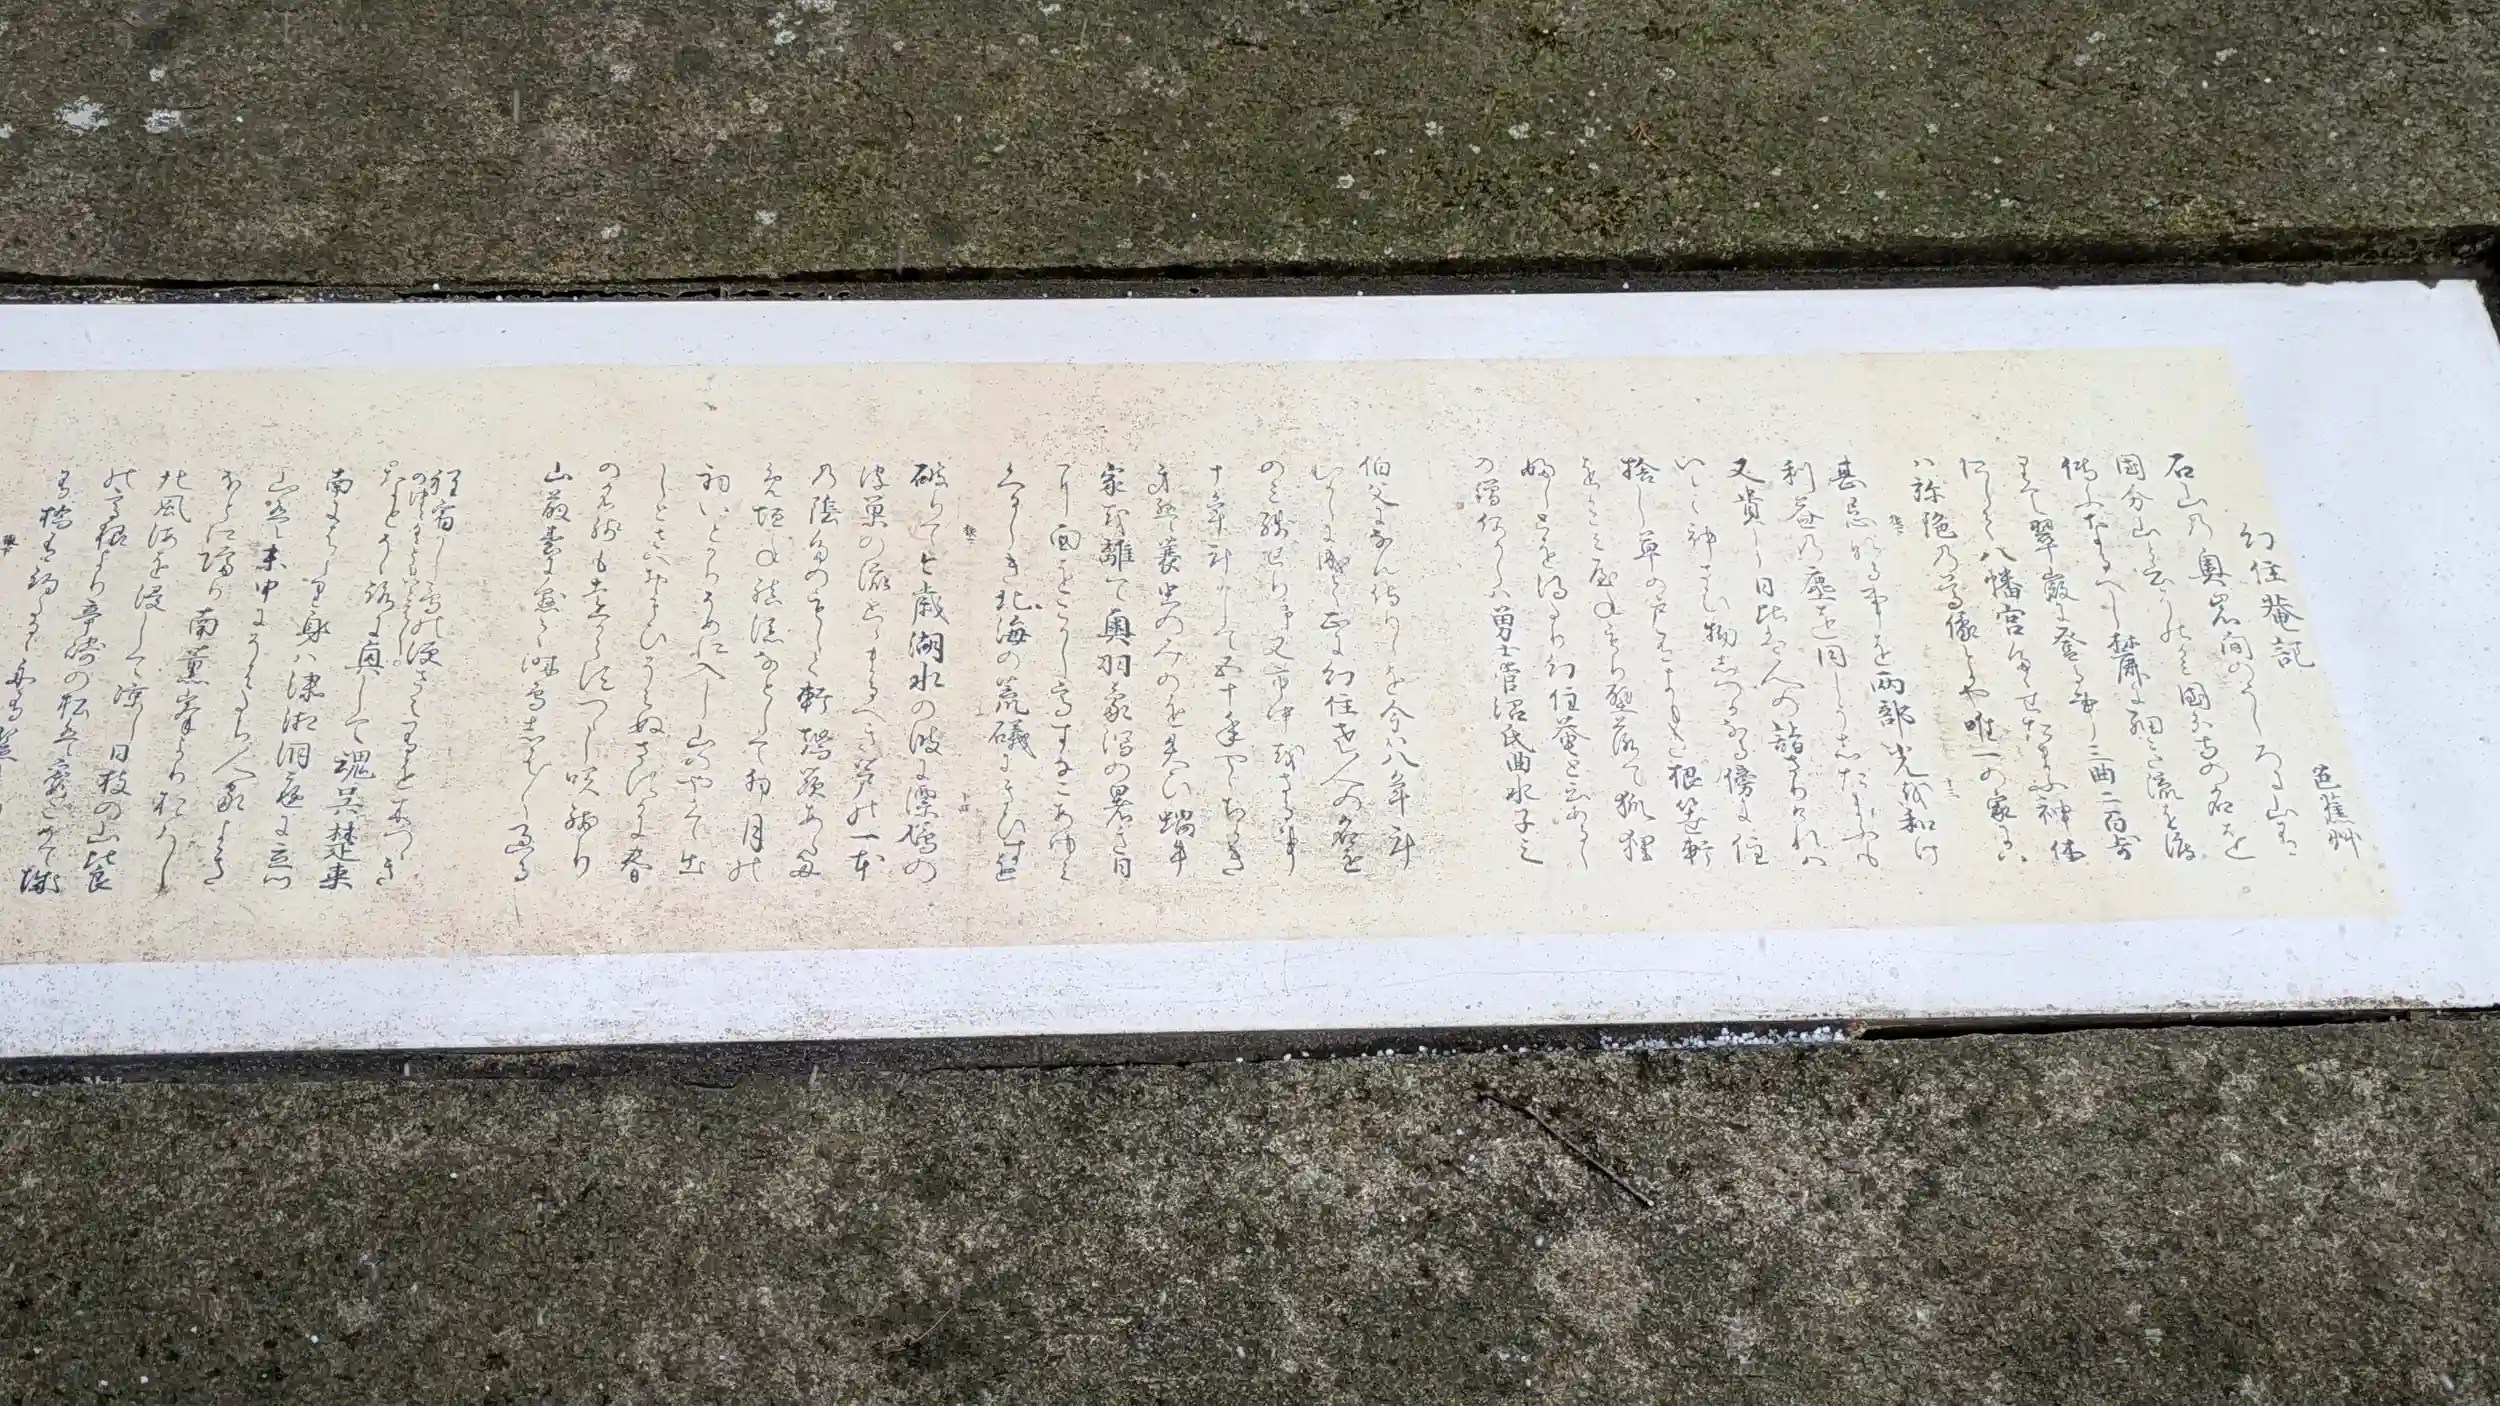 幻住菴記
芭蕉艸
石山乃奥岩間のうしろに山有
国分山と云そのかみ國分寺の名を
傳ふなるへし麓に細き流を渡
りて翠微に登る事三曲二百歩
にして八幡宮たゝせたまふ神体
ハ弥陁乃尊像とかや唯一の家にハ
甚忌なる事を両部光を和け
利益乃塵を同しうしたまふも
又貴し日比は人の詣さりけれハ
いとゝ神さひ物しつかなる傍に住
捨し草の戸有よもき根笹軒
をかこミ屋ねもり壁落て狐狸
ふしとを得たり幻住菴と云あるし
の僧何かしハ勇士菅沼氏曲水子之
伯父になん侍りしを今ハ八年計
むかしに成て正に幻住老人の名を
のミ残せり予又市中をさる事
十年計にして五十年やゝちかき
身は蓑虫のみのを失ひ蝸牛
家を離て奥羽象潟の暑き日
に面をこかし高すなこあゆミ
くるしき北海の荒礒にきひすを
破りて今歳湖水の波に漂鳰の
浮巣の流とゝまるへき芦の一本
乃陰たのもしく軒端茨あらため
垣ね結添なとして卯月の
初いとかりそめに入し山のやかて出
しとさへおもひそミぬさすかに春
の名残も遠からすつゝし咲残り
山藤松に懸て時鳥しは〳〵過る
程宿かし鳥の便さへ有を木つゝき
のつゝくともいとはし
なとそゝろに興して魂呉楚東
南にはしり身ハ瀟湘洞庭に立
山は未申にそはたち人家よき
ほとに隔り南薫峯よりおろし
北風海を浸して涼し日枝の山比良
の高根より辛崎の松は霞こめて城
有橋有釣たるゝ舟有笠